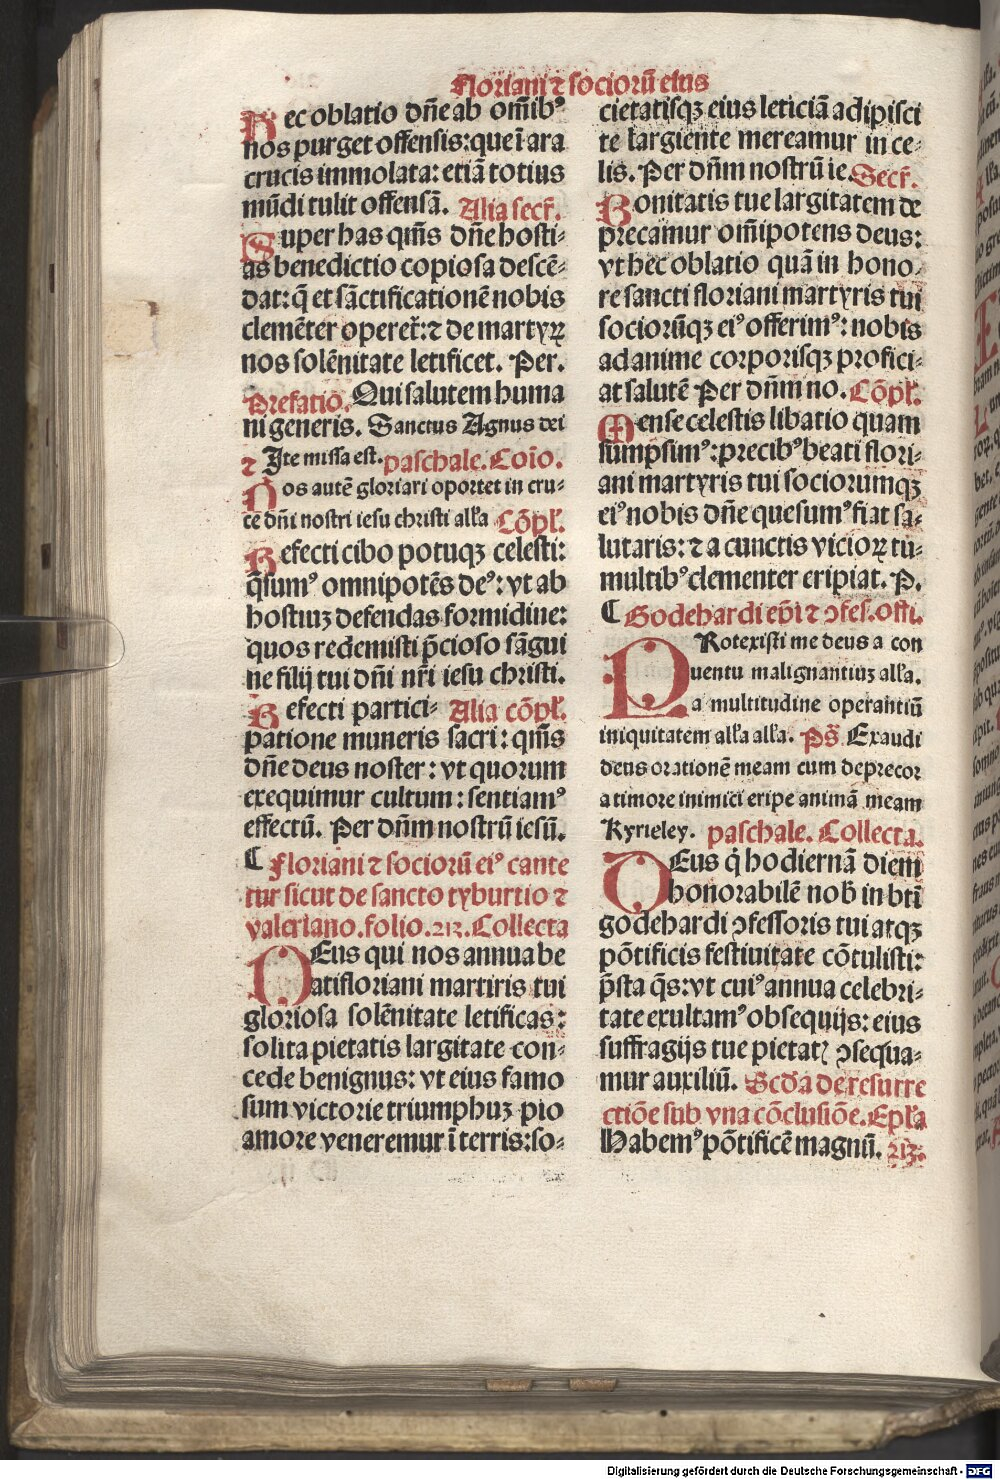 Floriani ⁊ sociorū eius
Hec oblatio dn̄e ab om̄ibꝰ
nos purget offensis: que ī ara
crucis immolata: etiā totius
mūdi tulit offensā. Alia secr̄.
Super has qm̄s dn̄e hosti-
as benedictio copiosa descē-
dat: q̄ et sāctificationē nobis
clemēter operet̄: ⁊ de martyꝝ
nos solēnitate letificet. Per.
Prefatiō. Qui salutem huma
ni generis. Sanctus Agnus dei
⁊ Ite missa est. paschale. Coīo.
Nos autē gloriari oportet in cru-
ce dn̄i nostri iesu christi all'a Cōpl'.
Refecti cibo potuqꝫ celesti:
q̄sumꝰ omnipotēs deꝰ: vt ab
hostiuꝫ defendas formidine:
quos redemisti p̄cioso sāgui
ne filij tui dn̄i nr̄i iesu christi.
Refecti partici- Alia cōpl'.
patione muneris sacri: qm̄s
dn̄e deus noster: vt quorum
exequimur cultum: sentiamꝰ
effectū. Per dn̄m nostrū iesū.
¶ Floriani ⁊ sociorū eiꝰ cante
tur sicut de sancto tyburtio ⁊
valeriano. folio. 213. Collecta
DEus qui nos annua be
ati floriani martiris tui
gloriosa solēnitate letificas:
solita pietatis largitate con-
cede benignus: vt eius famo
sum victorie triumphuꝫ pio
amore veneremur ī terris: so-
cietatisqꝫ eius leticiā adipisci
te largiente mereamur in ce-
lis. Per dn̄m nostrū ie. Secr̄.
Bonitatis tue largitatem de
precamur om̄ipotens deus:
vt hec oblatio quā in hono-
re sancti floriani martyris tui
sociorūqꝫ eiꝰ offerimꝰ: nobis
ad anime corporisqꝫ profici-
at salutē Per dn̄m no. Cōpl'.
Mense celestis libatio quam
sumpsimꝰ: precibꝰ beati flori-
ani martyris tui sociorumqꝫ
eiꝰ nobis dn̄e quesumꝰ fiat sa-
lutaris: ⁊ a cunctis vicioꝝ tu-
multibꝰ clementer eripiat. P.
¶ Godehardi ep̄i ⁊ ↄfes. offi.
PRotexisti me deus a con
uentu malignantiuꝫ all'a.
a multitudine operantiū
iniquitatem all'a all'a. Ps̄ Exaudi
deus orationē meam cum deprecor
a timore inimici eripe animā meam
Kyrieley. paschale. Collecta.
DEus q̇ hodiernā diem
honorabilē nob̄ in bt̄i
godehardi ↄfessoris tui atqꝫ
pōtificis festiuitate cōtulisti:
p̄sta q̄s: vt cuiꝰ annua celebri-
tate exultamꝰ obsequijs: eius
suffragijs tue pietatꝭ ↄsequa-
mur auxiliū. Scd̄a de resurre
ctiōe sub vna cōclusiōe. Epl'a
Habemꝰ pōtificē magnū. 213.
Digitalisierung gefördert durch die Deutsche Forschungsgemeinschaft - DFG